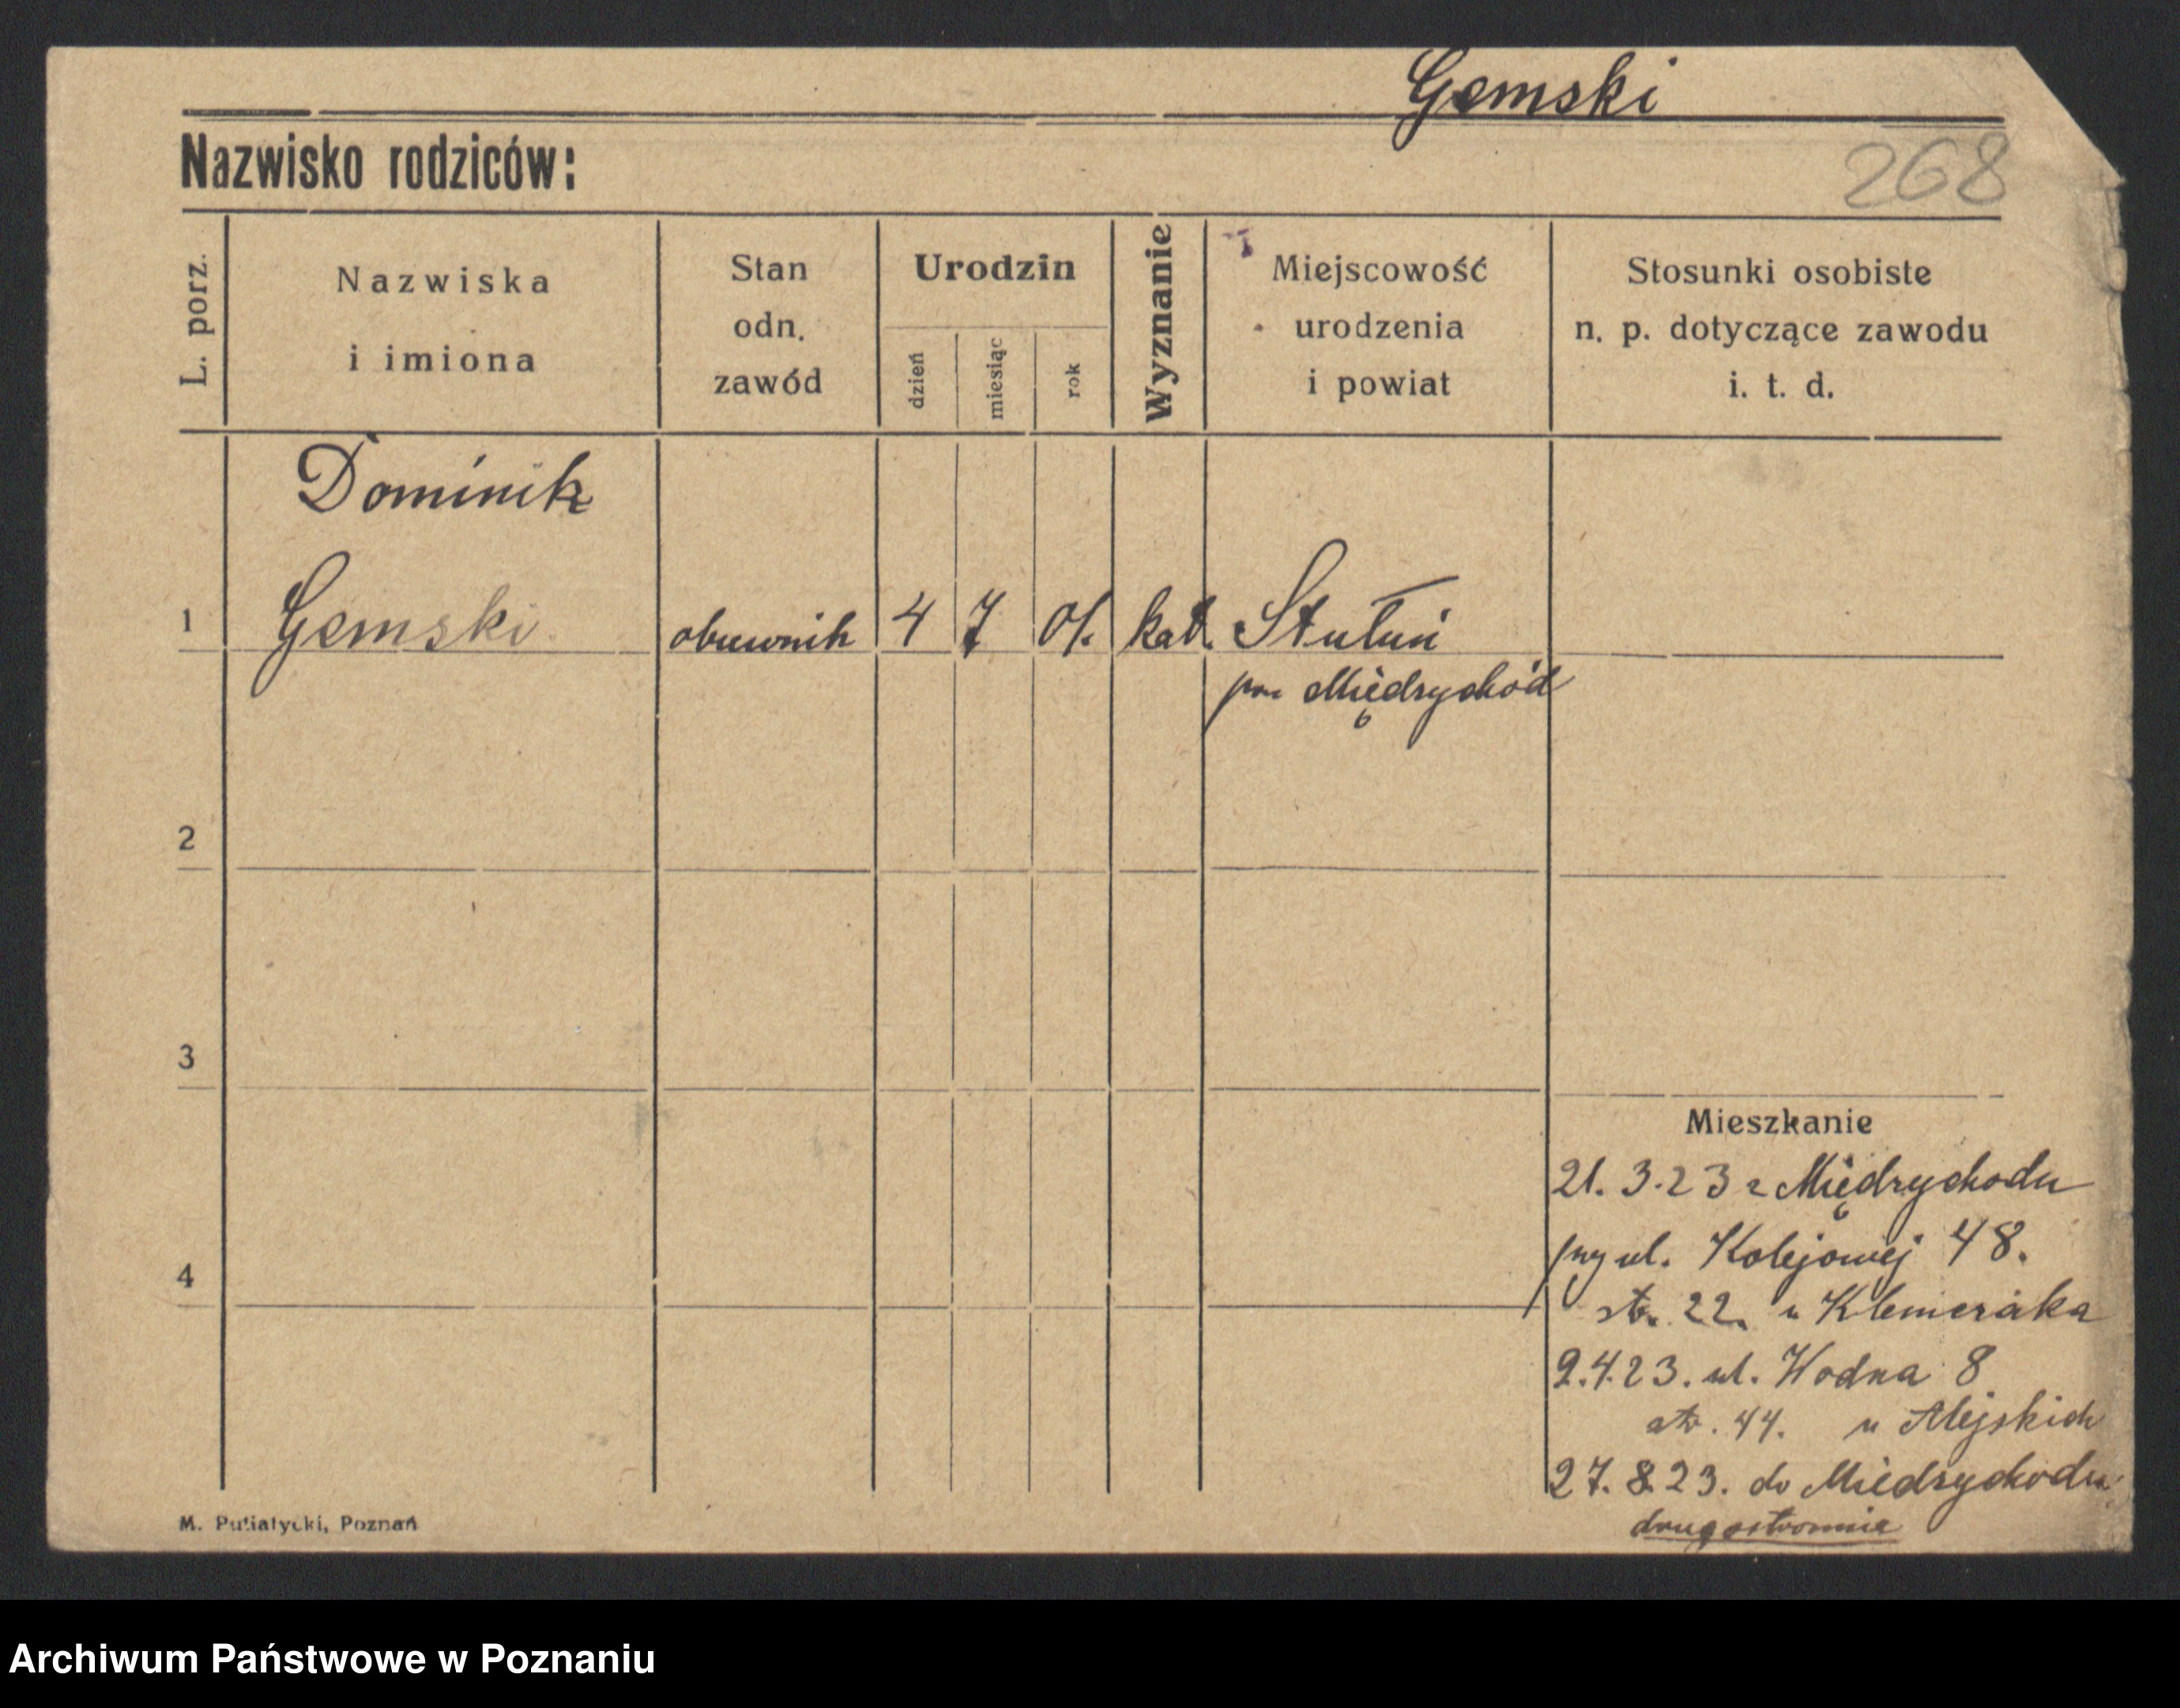 Gemski
Nazwisko rodziców:
268
L. porz.
Nazwiska
i imiona
Stan
odn.
zawód
Urodzin
dzień
miesiąc
rok
Wyznanie
Miejscowość
urodzenia
i powiat
Stosunki osobiste
n. p. dotyczące zawodu
i. t. d.
Dominik
1 Gemski obuwnik 4 7 01. kat. Stułuń
pow Międzychód
2
3
Mieszkanie
21.3.23 z Międzychodu
przy ul. Kolejowej 48.
4
str. 22. u Klemczaka
9.4.23. ul. Wodna 8
str. 44. u Alejskich
27.8.23. do Miedzychodu
drugostronnie
M. Putiatycki, Poznań
Archiwum Państwowe w Poznaniu